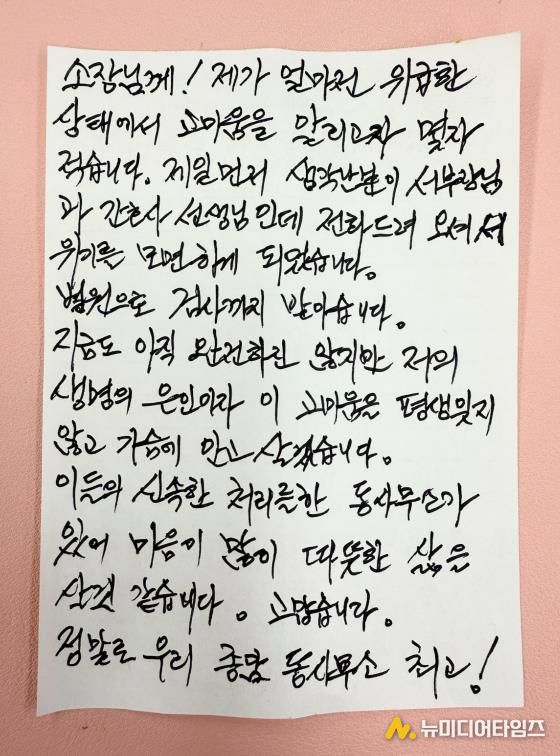 소장님께! 제가 얼마전 위급한
상태에서 고마움을 알리고자 몇자
적습니다. 제일먼저 생각난분이 서부장님
과 간호사 선생님인데 전화드려 오셔서
위기를 모면하게 되었습니다.
병원으로 검사까지 받아습니다.
지금도 아직 완전하진 않지만 저의
생명의 은인이라 이 고마움을 평생잊지
않고 가슴에 안고 살겠습니다.
이들의 신속한 처리를한 동사무소가
있어 마음이 많이 따뜻한 삶을
산것 같습니다. 고맙습니다.
정말로 우리 종암 동사무소 최고!
뉴미디어타임즈